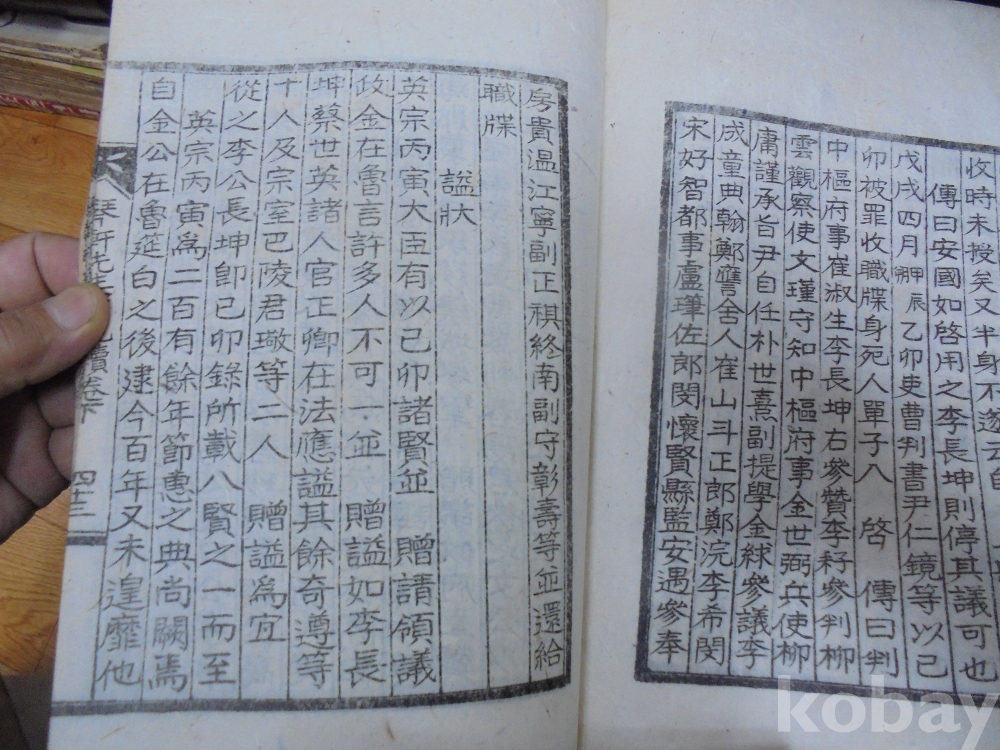 收時未授矣又半身不遂云
傳曰安國如啓用之李長坤則停其議可也
戊戌四月甲辰乙卯吏曹判書尹仁鏡等以己
卯被罪收職牒身死人單子入 啓 傳曰判
中樞府事崔淑生李長坤右參贊李耔參判柳
雲觀察使文瑾守知中樞府事金世弼兵使柳
庸謹承旨尹自任朴世熹副提學金絿參議李
成童典翰鄭譍舍人崔山斗正郎鄭浣李希閔
宋好智都事盧瑾佐郎閔懷賢縣監安遇參奉
房貴溫江寧副正祺終南副守彰壽等並還給
職牒
諡狀
英宗丙寅大臣有以己卯諸賢並 贈請領議
政金在魯言許多人不可一並 贈諡如李長
坤蔡世英諸人官正卿在法應諡其餘奇遵等
十人及宗室巴陵君璥等二人 贈諡為宜
從之李公長坤卽己卯錄所載八賢之一而至
英宗丙寅為二百有餘年節惠之典尚闕焉
自金公在魯筵白之後建今百年又未遑靡他
琴軒先生 續卷下
四十三
kobay